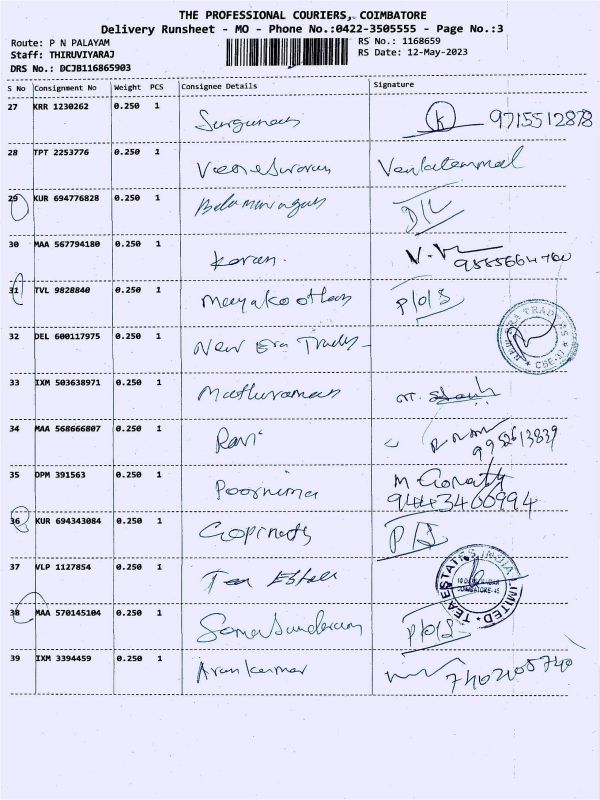 THE PROFESSIONAL COURIERS, COIMBATORE
Delivery Runsheet - MO - Phone No.:0422-3505555 - Page No.:3
Route: P N PALAYAM
RS No.: 1168659
Staff: THIRUVIYARAJ
RS Date: 12-May-2023
DRS No.: DCJB116865903
S No Consignment No Weight PCS Consignee Details Signature
27 KRR 1230262 0.250 1 K 9715512878
28 TPT 2253776 0.250 1
29 KUR 694776828 0.250 1 Balamurugan D/L
30 MAA 567794180 0.250 1 Karan.
31 TVL 9828840 0.250 1 Mayakoothan P/O/S
32 DEL 600117975 0.250 1 New Era Trades - NEW ERA TRADERS CBE-
33 IXM 503638971 0.250 1 Mathuraman
34 MAA 568666807 0.250 1 Ravi
35 DPM 391563 0.250 1 Poornima M Gomathy
9443460994
36 KUR 694343084 0.250 1 Gopinath
37 VLP 1127854 0.250 1 Tea Estate TEA ESTATES INDIA LIMITED COIMBATORE-
38 MAA 570145104 0.250 1 Somasundaram P/O/S
39 IXM 3394459 0.250 1 Arunkumar 7402105740